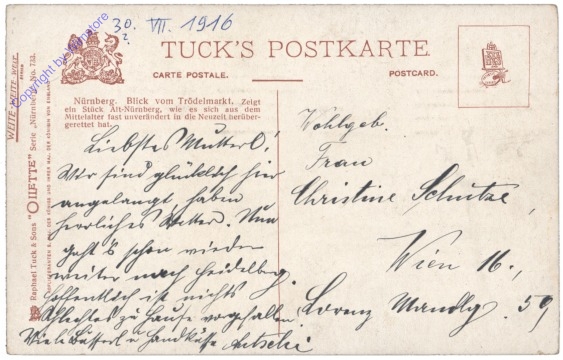 30. VII. 1916
TUCK'S POSTKARTE.
CARTE POSTALE.
POSTCARD.
Nürnberg. Blick vom Trödelmarkt. Zeigt
ein Stück Alt-Nürnberg, wie es sich aus dem
Mittelalter fast unverändert in die Neuzeit herüber-
gerettet hat.
Liebstes Mutterl!
Wir sind glücklich hier
angelangt, haben
herrliches Wetter. Nun
geht's schon wieder
weiter nach Heidelberg.
Hoffentlich ist nichts
Schlechtes zu Hause vorgefallen.
Viele Busserl u Handküsse
Wohlgeb.
Frau
Christine Schütze,
Wien 16.,
Lorenz Mandlg. 59
WEITE WEITE WELT
Raphael Tuck & Sons "OILETTE" Serie „Nürnberg" No. 733.
Copyright by